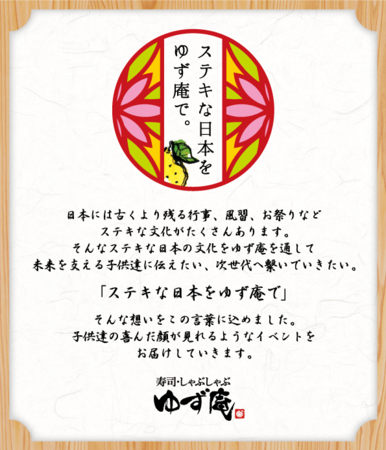 ステキな日本を
ゆず庵で。
日本には古くより残る行事、風習、お祭りなど
ステキな文化がたくさんあります。
そんなステキな日本の文化をゆず庵を通して
未来を支える子供達に伝えたい、次世代へ繋いでいきたい。
「ステキな日本をゆず庵で」
そんな想いをこの言葉に込めました。
子供達の喜んだ顔が見れるようなイベントを
お届けしていきます。
寿司・しゃぶしゃぶ
ゆず庵